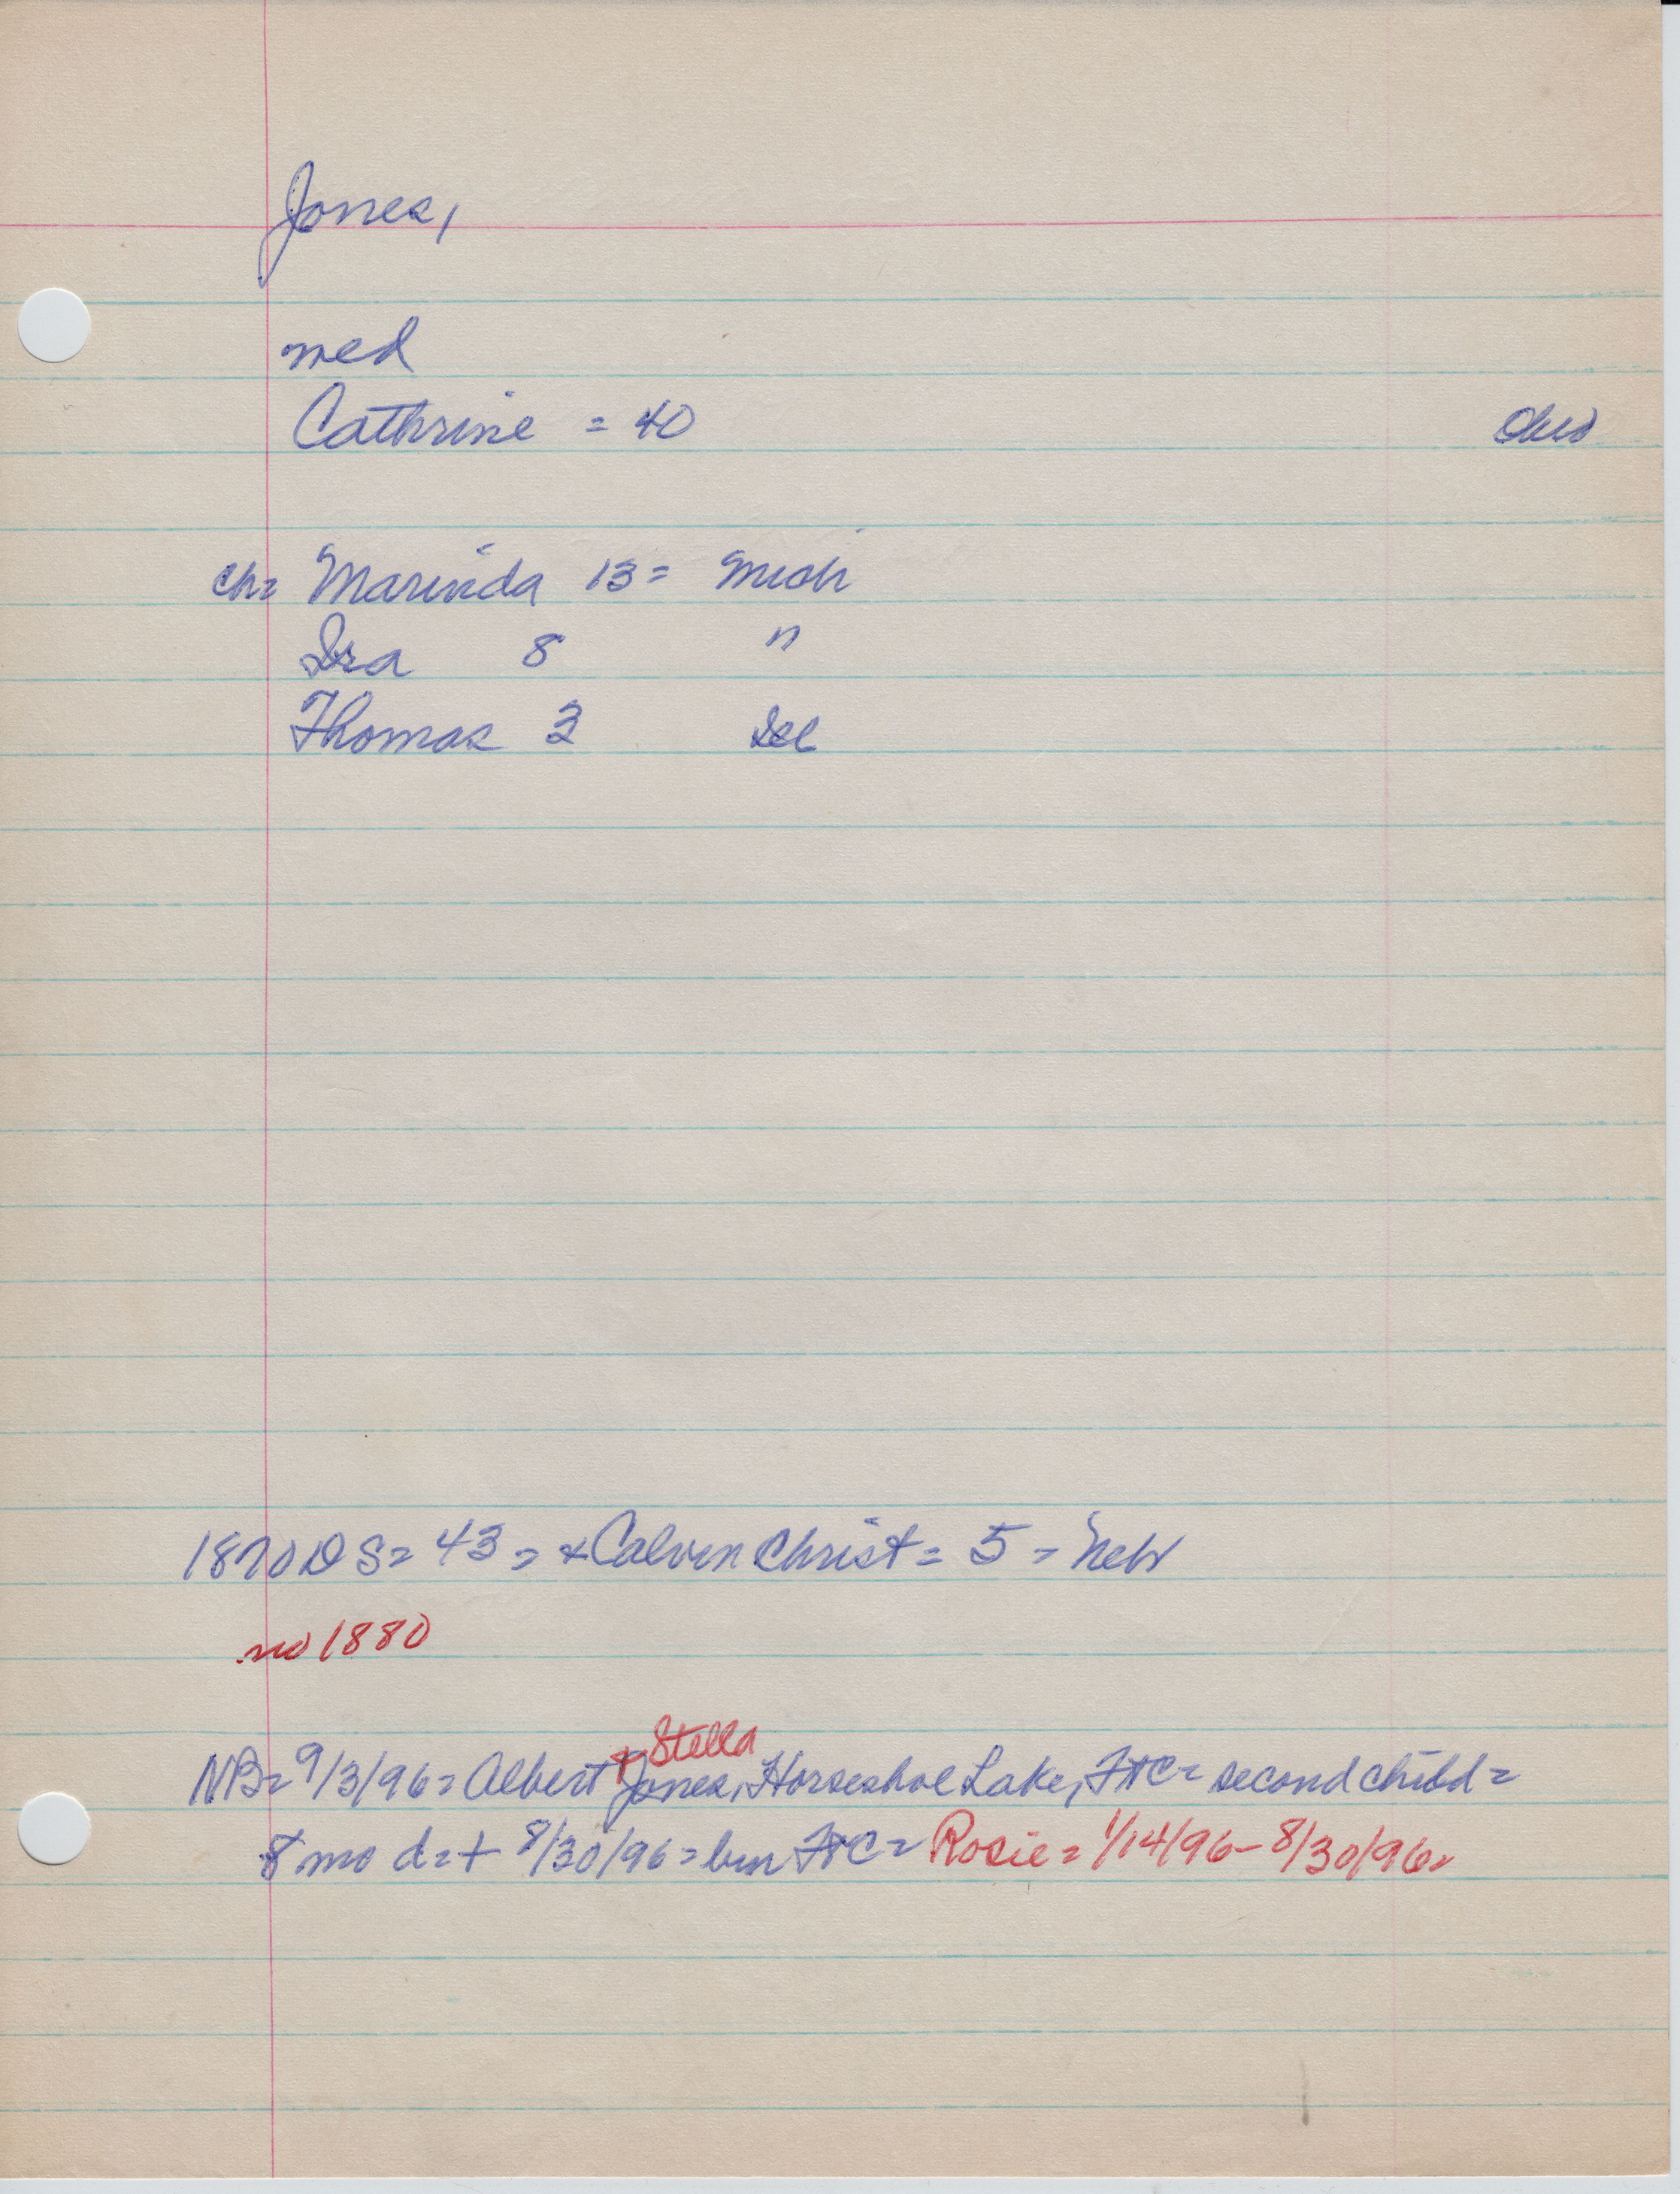 Jones,
med
Cathrine = 40 Ohio
ch = Marinda 13 = Mich
Ira 8 "
Thomas 3
1870 DS = 43 = + Calvin Christ = 5 = Neb
no 1880
& Stella
NB = 9/3/96 = Albert Jones, Horseshoe Lake, FTC = second child =
8 mo d = + 8/30/96 = bur FTC = Rosie = 1/14/96 - 8/30/96 =